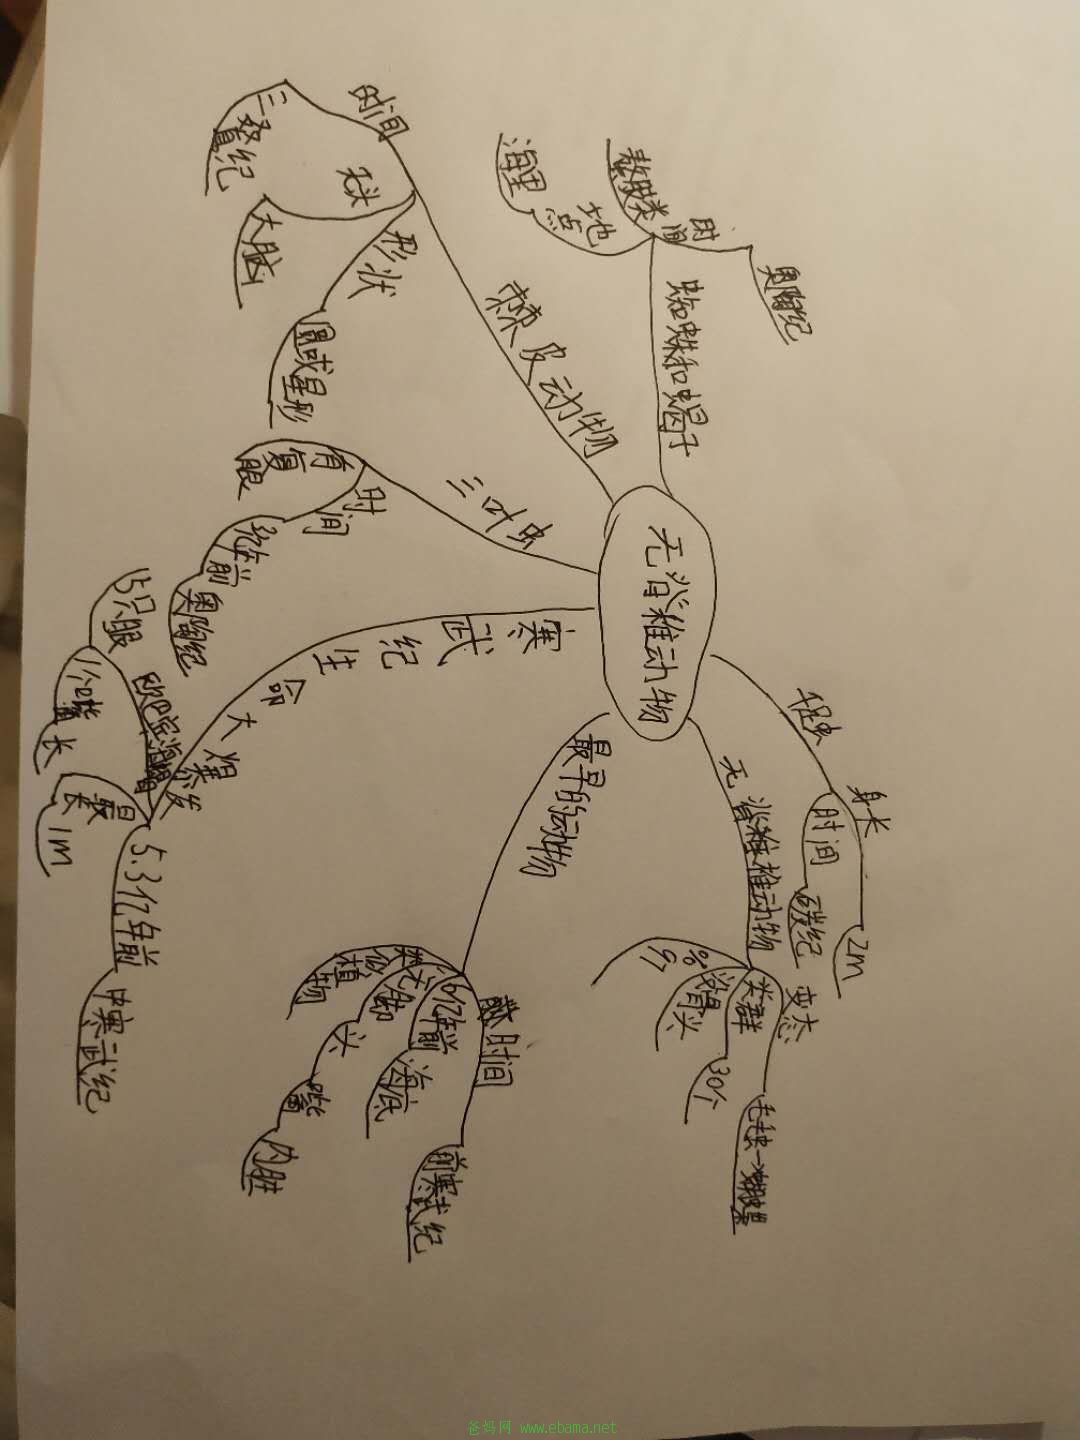 无脊椎动物
千足虫
身长
2m
时间
碳纪
无脊椎动物
变态
毛毛虫→蝴蝶
类群
30个
没骨头
97%
最早的动物
时间
前寒武纪
6亿年前
海底
无脚
头
嘴
内脏
类似植物
寒武纪生命大爆发
5.3亿年前
中寒武纪
最长
1m
欧巴宾海蝎
1个嘴
长
5只眼
三叶虫
时间
亿年前
奥陶纪
有复眼
棘皮动物
形状
圆或星形
没头
大脑
时间
三叠纪
蜘蛛和蝎子
时间
奥陶纪
螯肢类
地点
海里
爸妈网 www.ebama.net